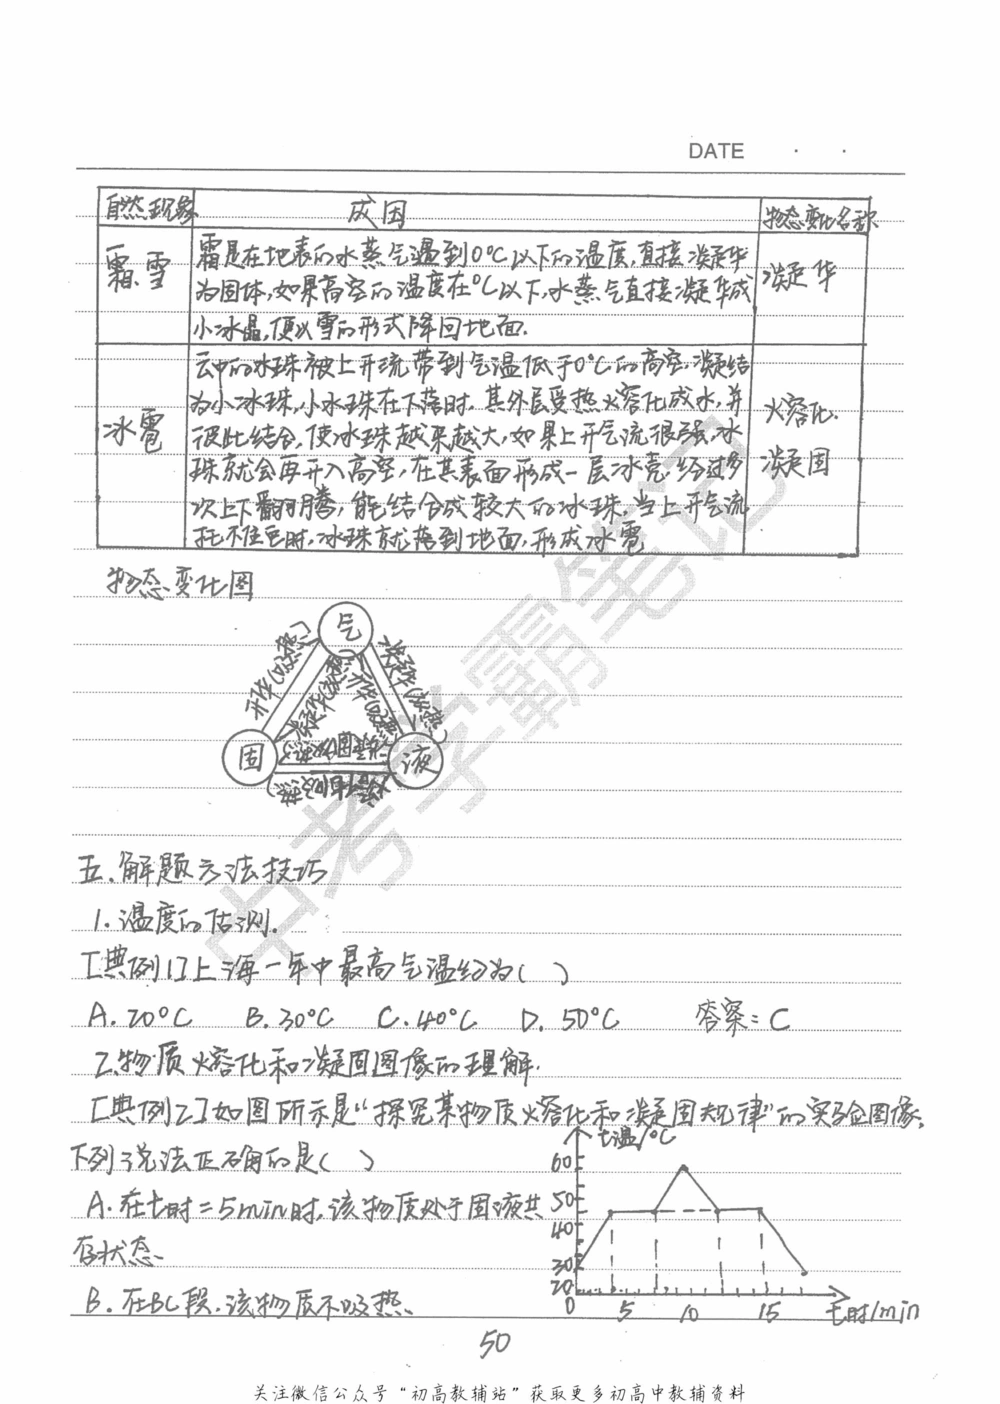 DATE
自然现象 成因 物态变化名称
霜、雪
霜是在地表的水蒸气遇到0°C以下的温度,直接凝华
为固体,如果高空的温度在0°C以下,水蒸气直接凝华成
小冰晶,便以雪的形式降回地面.
凝华
冰雹
云中的水珠被上升流带到气温低于0°C的高空,凝结
为小冰珠,小冰珠在下落时,其外层受热熔化成水,并
彼此结合,使冰珠越来越大,如果上升气流很强,冰
珠就会再升入高空,在其表面形成一层冰壳,经过多
次上下翻腾,能结合成较大的冰珠,当上升气流
托不住它时,冰珠就落到地面,形成冰雹
熔化.
凝固
物态变化图
气
升华(吸热)
固
液
五.解题方法技巧
1.温度的估测.
[典例1]上海一年中最高气温约为( )
A.20°C B.30°C C.40°C D.50°C 答案:C
2.物质熔化和凝固图像的理解.
[典例2]如图所示是“探究某物质熔化和凝固规律”的实验图像,
下列说法正确的是( )
A.在t时=5min时,该物质处于固液共
存状态.
B.在BC段,该物质不吸热.
t温/°C
60
50
40
30
20
0 5 10 15 t时/min
50
中考学霸笔记
关注微信公众号“初高教辅站”获取更多初高中教辅资料